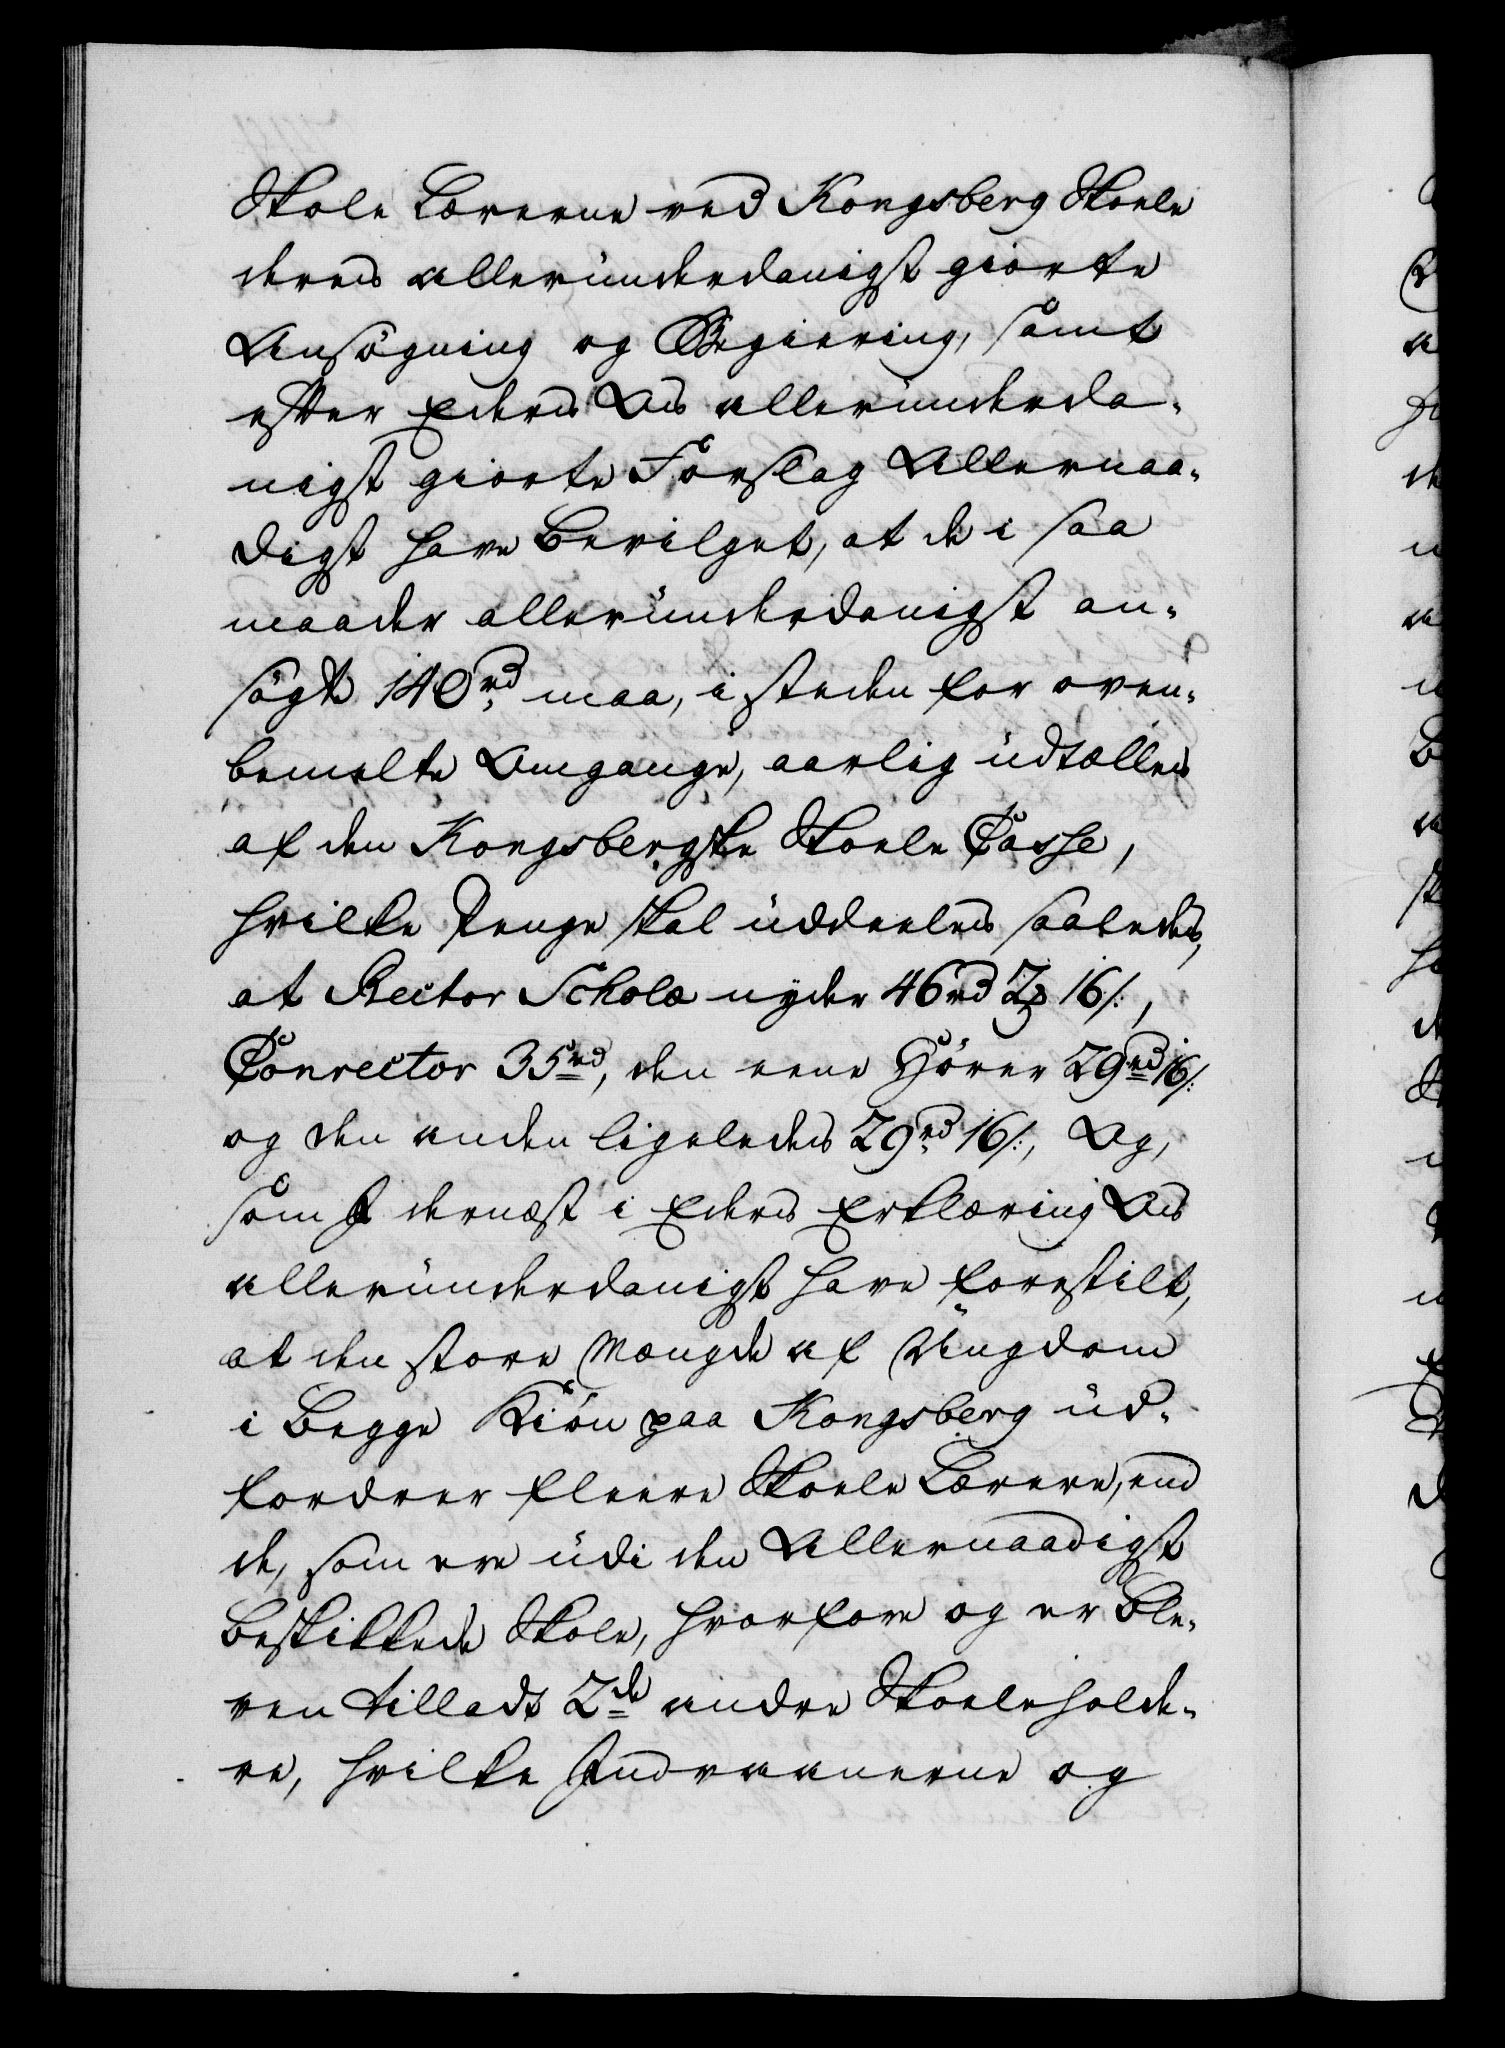 Skole Lærerne ved Kongsberg Skoele
deres allerunderdanigst giorte
Ansøgning og Begiering, samt
efter Eders Os allerunderda-
nigst giorte Forslag Allernaa-
digst have Bevilget, at de i saa
maader allerunderdanigst an-
søgte 140 rd maa, i steden for oven-
bemelte Omgange, aarlig udtælles
af den Kongsbergske Skoele Casse,
hvilke Penge skal uddeeles saaledes,
at Rector Scholæ nyder 46 rd 2 ꝶ 16 s:,
Conrector 35 rd, den eene Hører 29 rd 16 s:
og den anden ligeledes 29 rd 16 s:, Og,
som I dernæst i Eders Erklæring Os
allerunderdanigst have forestilt,
at den store Mængde af Ungdom
i Begge Kiøn paa Kongsberg ud-
fordrer fleere Skoele Lærere, end
de, som ere udi den Allernaadigst
Beskikkede Skole, hvorfore og er Ble-
ven tilladt 2de andre Skoeleholde-
re, hvilke Indvaanerne og